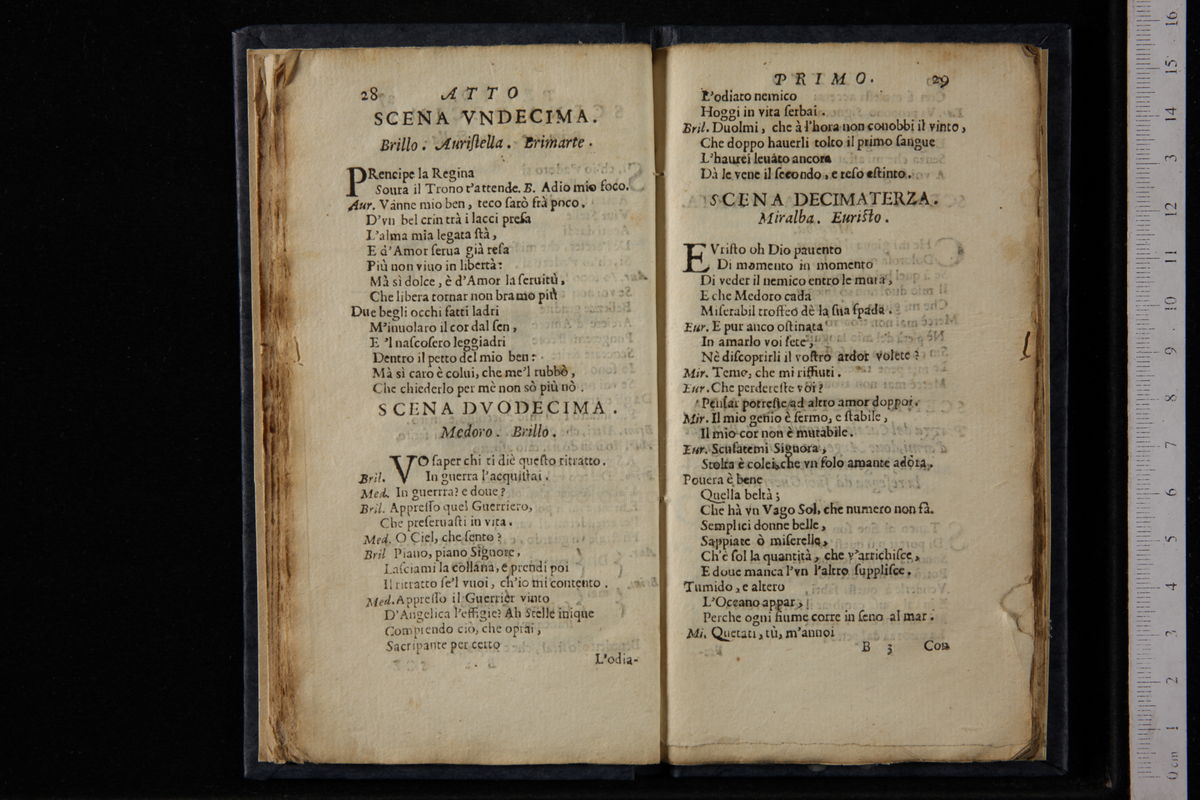 28 ATTO
SCENA VNDECIMA.
Brillo. Auriſtella. Brimarte.
PRencipe la Regina
Soura il Trono t'attende. B. Adio mio foco.
Aur. Vanne mio ben, teco ſarò frà poco.
D'vn bel crin trà i lacci preſa
L'alma mia legata ſtà,
E d'Amor ſerua già reſa
Più non viuo in libertà:
Mà sì dolce, è d'Amor la ſeruitù,
Che libera tornar non bramo più
Due begli occhi fatti ladri
M'inuolaro il cor dal ſen,
E 'l naſcoſero leggiadri
Dentro il petto del mio ben:
Mà sì caro è colui, che me'l rubbò,
Che chiederlo per mè non sò più nò.
SCENA DVODECIMA.
Medoro. Brillo.
VO ſaper chi ti diè queſto ritratto.
Bril. In guerra l'acquiſtai.
Med. In guerrra? e doue?
Bril. Appreſſo quel Guerriero,
Che preſeruaſti in vita.
Med. O Ciel, che ſento?
Bril Piano, piano Signore,
Laſciami la collana, e prendi poi
Il ritratto ſe'l vuoi, ch'io mi contento.
Med. Appreſſo il Guerrier vinto
D'Angelica l'effigie? Ah Stelle inique
Comprendo ciò, che oprai,
Sacripante per certo
L'odia-
PRIMO. 29
L'odiato nemico
Hoggi in vita ſerbai.
Bril. Duolmi, che à l'hora non conobbi il vinto,
Che doppo hauerli tolto il primo ſangue
L'haurei leuato ancora
Dà le vene il ſecondo, e reſo eſtinto.
SCENA DECIMATERZA.
Miralba. Euriſto.
EVriſto oh Dio pauento
Di momento in momento
Di veder il nemico entro le mura,
E che Medoro cada
Miſerabil trofeo dè la ſua ſpada.
Eur. E pur anco oſtinata
In amarlo voi ſete,
Nè diſcoprirli il voſtro ardor volete?
Mir. Temo, che mi rifiuti.
Eur. Che perdereſte voi?
Penſar potreſte ad altro amor doppoi.
Mir. Il mio genio è fermo, e ſtabile,
Il mio cor non è mutabile.
Eur. Scuſatemi Signora,
Stolta è colei, che vn ſolo amante adora.
Pouera è bene
Quella beltà;
Che hà vn Vago Sol, che numero non fà.
Semplici donne belle,
Sappiate ò miſerelle,
Ch'è ſol la quantità, che v'arrichiſce,
E doue manca l'vn l'altro ſuppliſce.
Tumido, e altero
L'Oceano appar,
Perche ogni fiume corre in ſeno al mar.
Mi. Quetati, tù, m'annoi
B 3 Con